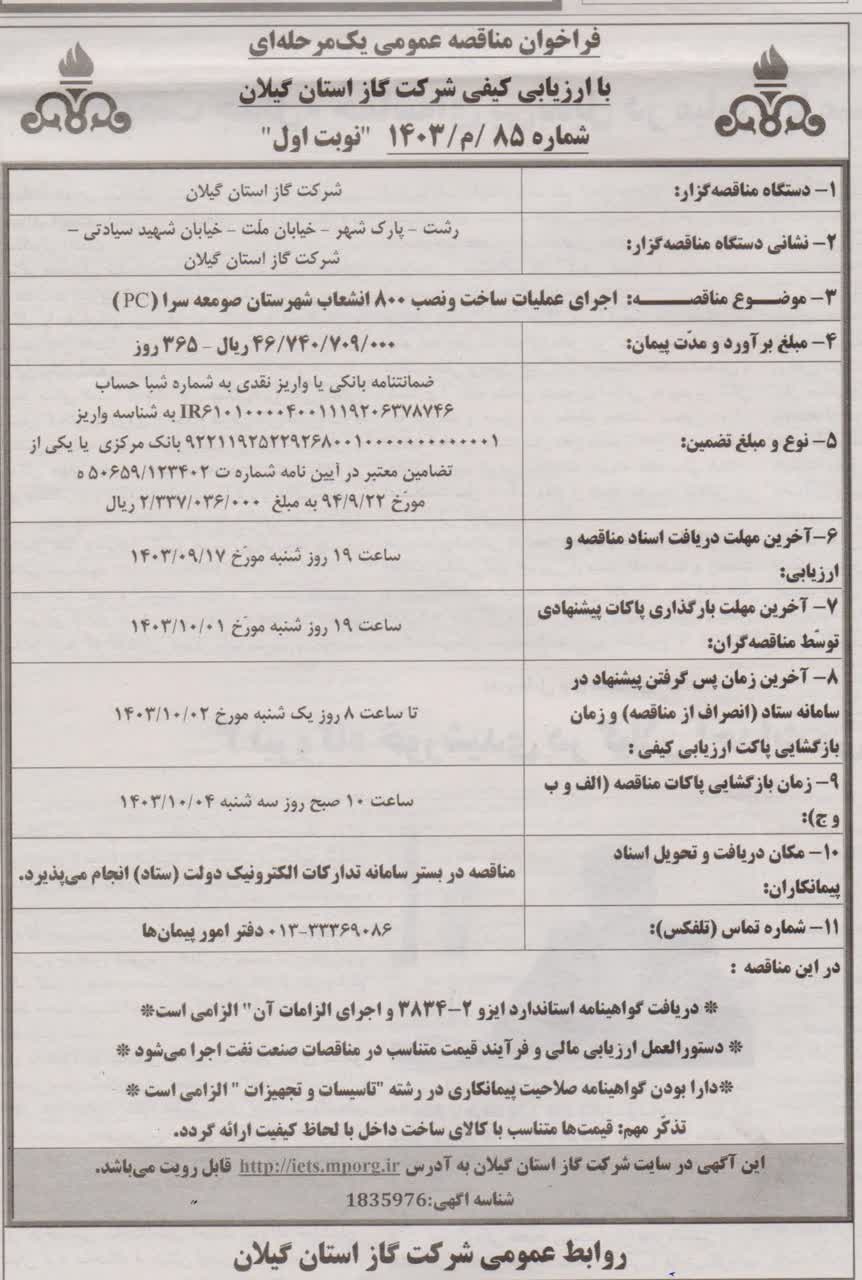 فراخوان مناقصه عمومی یک‌مرحله‌ای
با ارزیابی کیفی شرکت گاز استان گیلان
شماره ۸۵ /م/۱۴۰۳ "نوبت اول"
۱- دستگاه مناقصه‌گزار:
شرکت گاز استان گیلان
۲- نشانی دستگاه مناقصه‌گزار:
رشت - پارک شهر - خیابان ملّت - خیابان شهید سیادتی -
شرکت گاز استان گیلان
۳- موضوع مناقصه: اجرای عملیات ساخت ونصب ۸۰۰ انشعاب شهرستان صومعه سرا (PC)
۴- مبلغ برآورد و مدّت پیمان:
۴۶/۷۴۰/۷۰۹/۰۰۰ ریال - ۳۶۵ روز
۵- نوع و مبلغ تضمین:
ضمانتنامه بانکی یا واریز نقدی به شماره شبا حساب
IR۶۱۰۱۰۰۰۰۴۰۰۱۱۱۹۲۰۶۳۷۸۷۴۶ به شناسه واریز
۹۲۲۱۱۹۲۵۲۲۹۲۶۸۰۰۱۰۰۰۰۰۰۰۰۰۰۰۰۱ بانک مرکزی یا یکی از
تضامین معتبر در آیین نامه شماره ت ۵۰۶۵۹/۱۲۳۴۰۲ ه
مورّخ ۹۴/۹/۲۲ به مبلغ ۲/۳۳۷/۰۳۶/۰۰۰ ریال
۶-آخرین مهلت دریافت اسناد مناقصه و
ارزیابی:
ساعت ۱۹ روز شنبه مورّخ ۱۴۰۳/۰۹/۱۷
۷- آخرین مهلت بارگذاری پاکات پیشنهادی
توسّط مناقصه‌گران:
ساعت ۱۹ روز شنبه مورّخ ۱۴۰۳/۱۰/۰۱
۸- آخرین زمان پس گرفتن پیشنهاد در
سامانه ستاد (انصراف از مناقصه) و زمان
بازگشایی پاکت ارزیابی کیفی :
تا ساعت ۸ روز یک شنبه مورخ ۱۴۰۳/۱۰/۰۲
۹- زمان بازگشایی پاکات مناقصه (الف و ب
و ج):
ساعت ۱۰ صبح روز سه شنبه ۱۴۰۳/۱۰/۰۴
۱۰- مکان دریافت و تحویل اسناد
پیمانکاران:
مناقصه در بستر سامانه تدارکات الکترونیک دولت (ستاد) انجام می‌پذیرد.
۱۱- شماره تماس (تلفکس):
۰۱۳-۳۳۳۶۹۰۸۶ دفتر امور پیمان‌ها
در این مناقصه :
* دریافت گواهینامه استاندارد ایزو ۲-۳۸۳۴ و اجرای الزامات آن" الزامی است*
* دستورالعمل ارزیابی مالی و فرآیند قیمت متناسب در مناقصات صنعت نفت اجرا می‌شود *
*دارا بودن گواهینامه صلاحیت پیمانکاری در رشته "تاسیسات و تجهیزات " الزامی است *
تذکّر مهم: قیمت‌ها متناسب با کالای ساخت داخل با لحاظ کیفیت ارائه گردد.
این آگهی در سایت شرکت گاز استان گیلان به آدرس http://iets.mporg.ir قابل رویت می‌باشد.
شناسه آگهی:1835976
روابط عمومی شرکت گاز استان گیلان